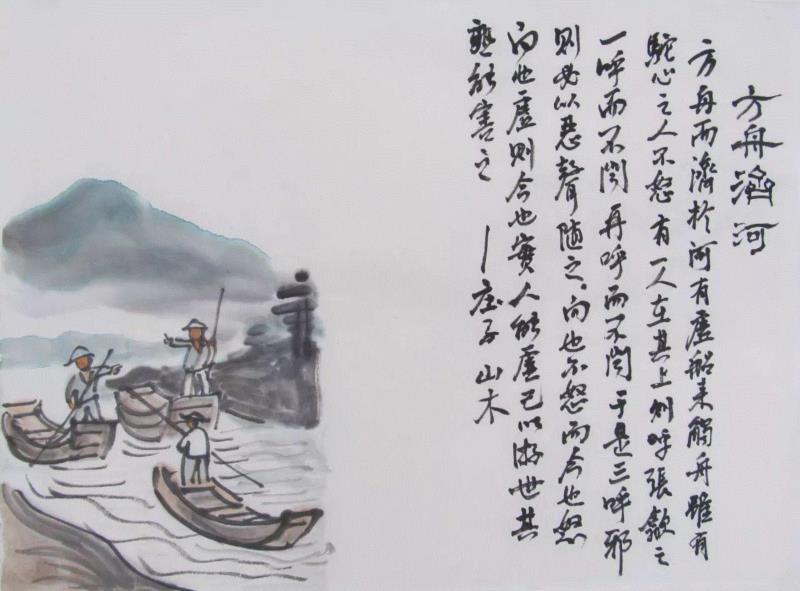 方舟濟河
方舟而濟於河有虛船来觸舟雖有
心之人不怒有一人在其上则呼張歙之
一呼而不闻再呼而不闻于是三呼邪
则必以惡聲随之。向也不怒而今也怒
向也虛则今也實人能虛己以游世其
孰能害之 —庄子 山木